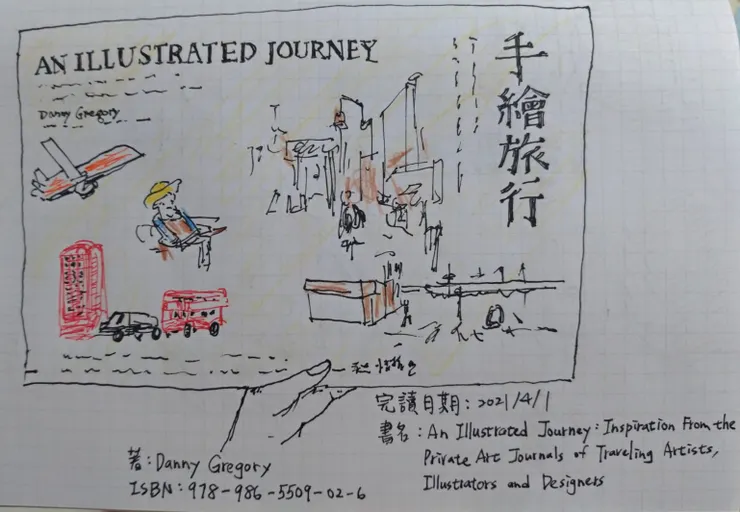 AN ILLUSTRATED JOURNEY
Danny Gregory
手繪旅行
完讀日期:2021/4/1
書名:An Illustrated Journey:Inspiration From the
Private Art Journals of Traveling Artists,
Illustrators and Designers
著:Danny Gregory
ISBN:978-986-5509-02-6